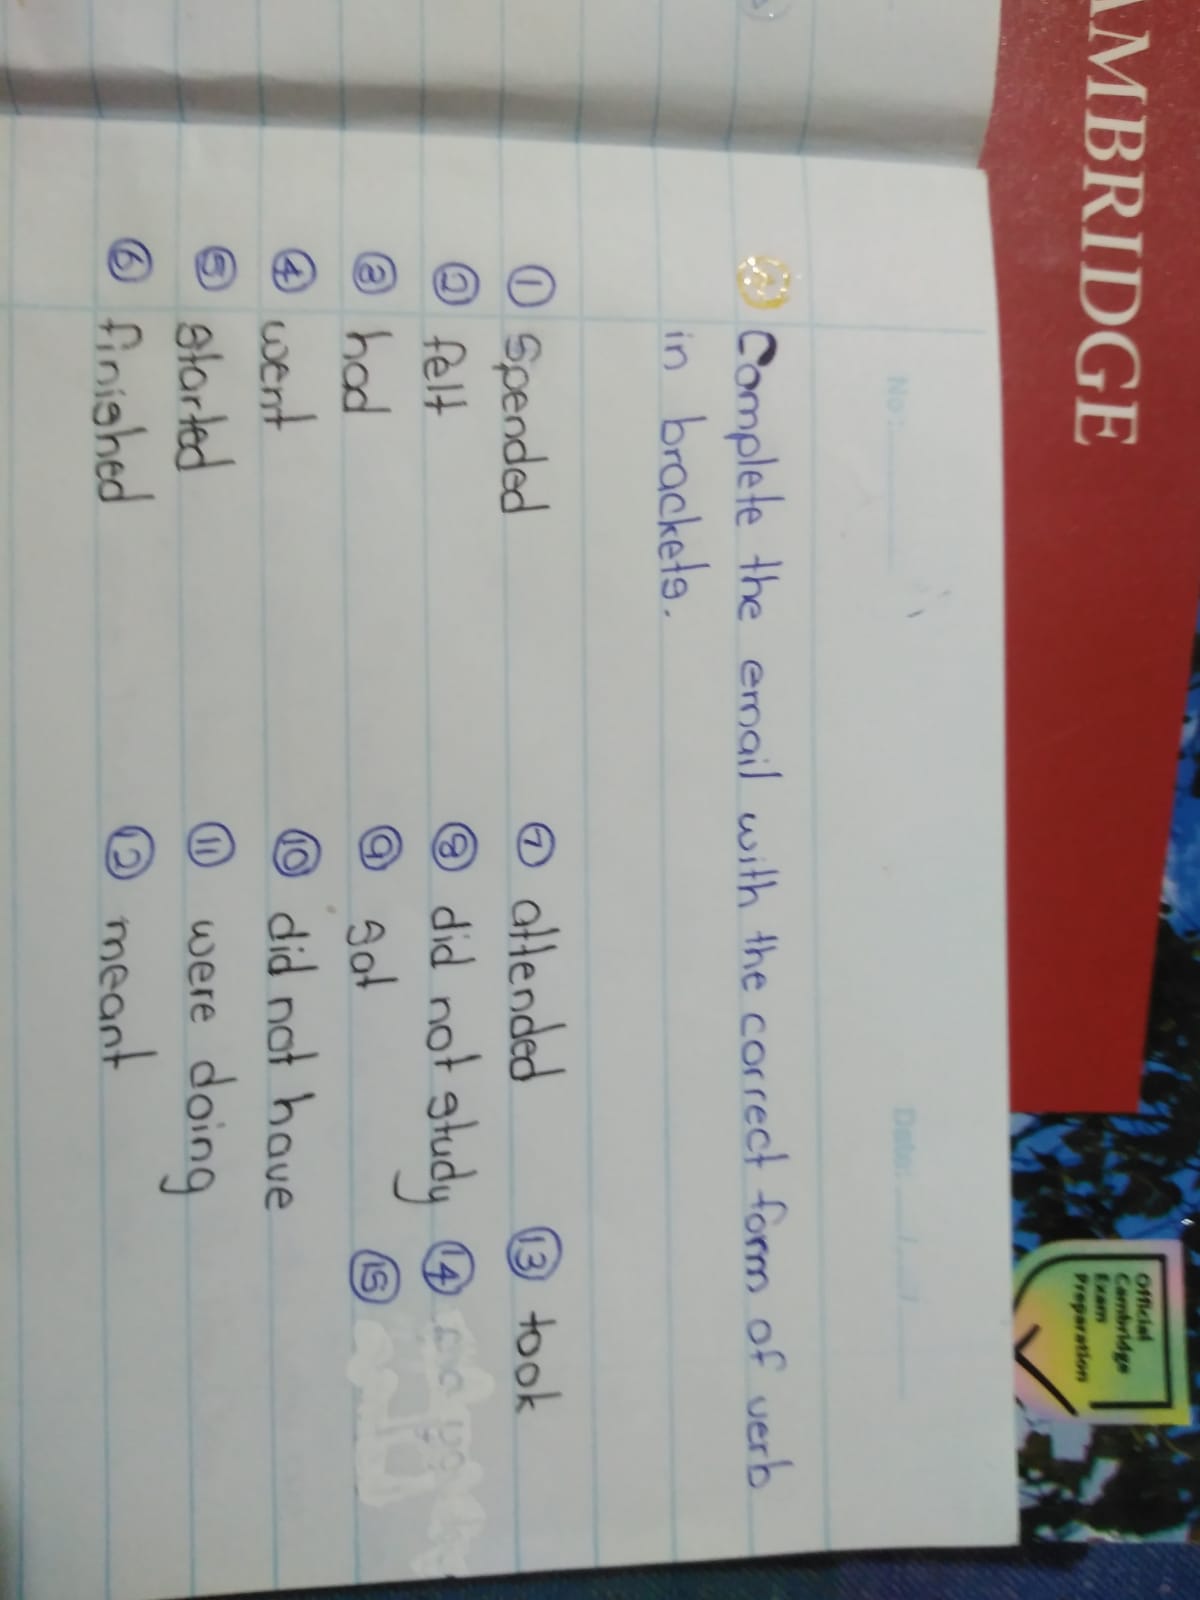 AMBRIDGE
Official
Cambridge
Exam
Preparation
No:
Date:
Complete the email with the correct form of verb
in brackets.
① Spended ⑦ attended ⑬ took
② felt ⑧ did not study ⑭
③ had ⑨ sat ⑮
④ went ⑩ did not have
⑤ started ⑪ were doing
⑥ finished ⑫ meant